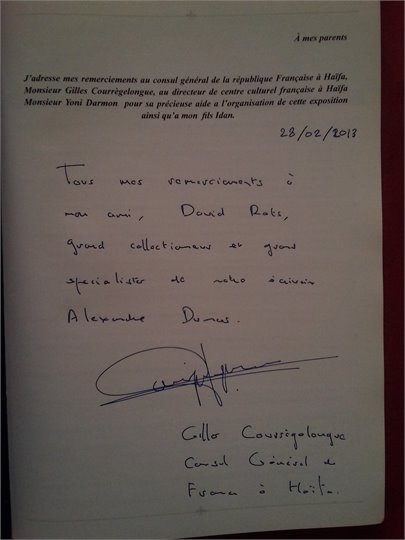 À mes parents
J'adresse mes remerciements au consul général de la république Française à Haïfa,
Monsieur Gilles Courrègelongue, au directeur de centre culturel française à Haïfa
Monsieur Yoni Darmon pour sa précieuse aide a l'organisation de cette exposition
ainsi qu'a mon fils Idan.
28/02/2013
Tous mes remerciements à
mon ami, David Rots,
grand collectionneur et grand
specialister de notre écrivain
Alexandre Dumas.
Gilles Courrègelongue
Consul Général de
France à Haïfa.